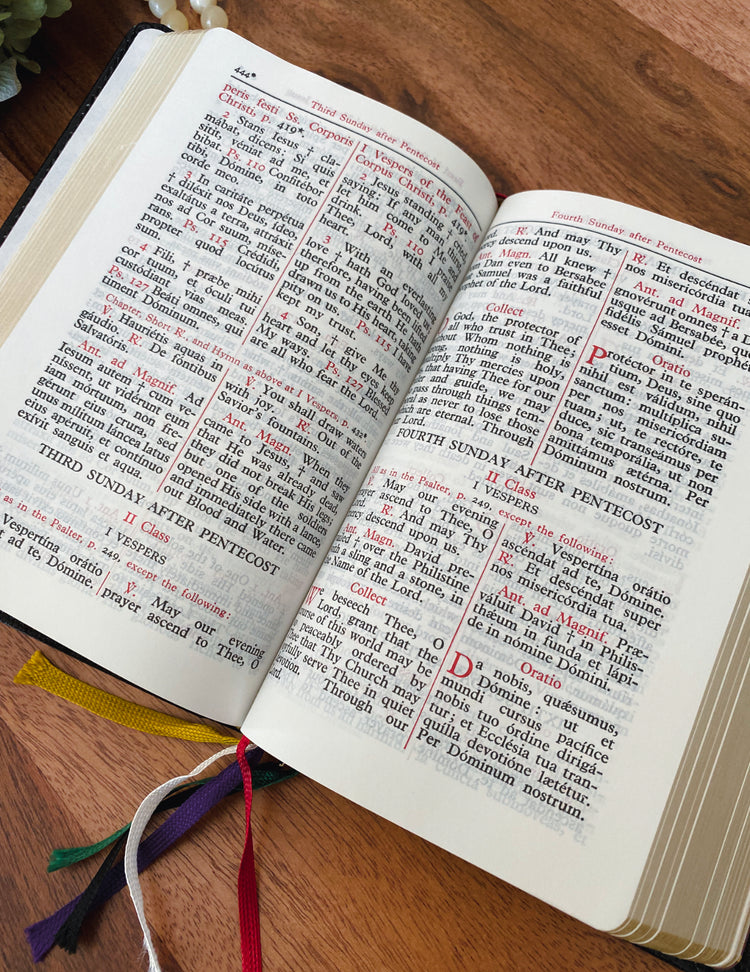 444*
Third Sunday after Pentecost
peris festi Ss. Corporis
Christi, p. 419*
2 Stans Jesus † cla-
mábat, dicens: Si quis
sitit, véniat ad me, et
bibat. Ps. 110 Confitébor
tibi, Dómine, in toto
corde meo.
3 In caritáte perpétua
† diléxit nos Deus, ideo
exaltátus a terra, attráxit
nos ad Cor suum, mise-
Ps. 115 Crédidi,
propter quod locútus
sum.
4 Fili, † præbe mihi
cor tuum, et óculi tui
custódiant vias meas.
Ps. 127 Beáti omnes, qui
timent Dóminum.
I Vespers of the Feast of
Corpus Christi, p. 419*
2 Jesus standing † cried,
saying: If any man thirst,
let him come to Me and
drink. Ps. 110 I
Thee, Lord, with all my
heart.
3 With an everlasting
love † hath God loved us,
therefore, having been lifted
up from the earth, He hath
drawn us to His Heart, taking
pity on us. Ps. 115 I have
kept my trust.
4 Son, † give Me thy
heart and let thy eyes keep
My ways. Ps. 127 Blessed
are all who fear the Lord.
Chapter, Short ℟. and Hymn as above at I Vespers, p. 432*
℣. Hauriétis aquas in
gáudio. ℟. De fóntibus
Salvatóris.
Ant. ad Magnif. Ad
Jesum autem † cum ve-
níssent, ut vidérunt eum
jam mórtuum, non fre-
gérunt ejus crura, sed
unus mílitum láncea latus
ejus apéruit, et contínuo
exívit sanguis et aqua.
℣. You shall draw waters
with joy. ℟. Out of the
Savior's fountains.
Ant. Magn. When they
came to Jesus, † and saw
that He was already dead,
they did not break His legs;
but one of the soldiers
opened His side with a lance,
and immediately there came
out Blood and Water.
THIRD SUNDAY AFTER PENTECOST
II Class
I VESPERS
as in the Psalter, p. 249, except the following:
Vespertína orátio
ad te, Dómine.
℣. May our evening
prayer ascend to Thee, O
Fourth Sunday after Pentecost
℟. And may Thy
descend upon us.
Ant. Magn. All knew †
Dan even to Bersabee
Samuel was a faithful
of the Lord.
Collect
God, the protector of
all who trust in Thee;
Whom nothing is
nothing is holy,
Thy mercies upon
that having Thee for our
and guide, we may
through things tem-
as never to lose those
are eternal. Through
℟. Et descéndat
nos misericórdia tua
Ant. ad Magnif.
gnovérunt omnes † a Dan
usque ad Bersabée, quod
fidélis Sámuel prophéta
esset Dómini.
Oratio
Protéctor in te sperán-
tium, Deus, sine quo
nihil est válidum, nihil
sanctum: multíplica su-
per nos misericórdiam
tuam; ut, te rectóre, te
duce, sic transeámus per
bona temporália, ut non
amittámus ætérna. Per
Dóminum nostrum.
FOURTH SUNDAY AFTER PENTECOST
II Class
I VESPERS
All as in the Psalter, p. 249, except the following:
℣. May our evening
prayer ascend to Thee, O
℟. And may Thy
descend upon us.
Ant. Magn. David pre-
† over the Philistine
with a sling and a stone, in
Name of the Lord.
Collect
We beseech Thee, O
Lord, grant that the
course of this world may be
peaceably ordered by
Thee that Thy Church may
joyfully serve Thee in quiet
devotion. Through our
Lord.
℣. Vespertína orátio
ascéndat ad te, Dómine.
℟. Et descéndat super
nos misericórdia tua.
Ant. ad Magnif. Præ-
váluit David † in Philis-
thǽum in funda et lápi-
de in nómine Dómini.
Oratio
Da nobis, quǽsumus,
Dómine: ut et
mundi cursus pacífice
nobis tuo órdine dirigá-
tur; et Ecclésia tua tran-
quílla devotióne lætétur.
Per Dóminum nostrum.